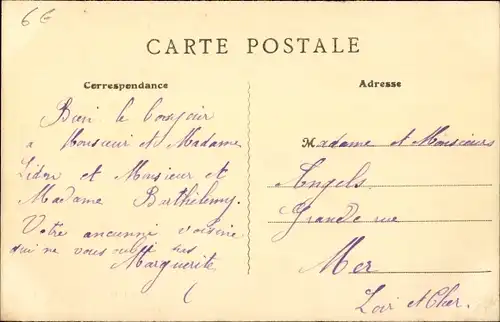 6 €
CARTE POSTALE
Correspondance
Adresse
Bien le bonjour
à Monsieur et Madame
et Monsieur et
Madame Barthélemy.
Votre ancienne voisine
qui ne vous oublie pas
Marguerite
Madame et Monsieur
Angels
Grande rue
Mer
Loir et Cher.